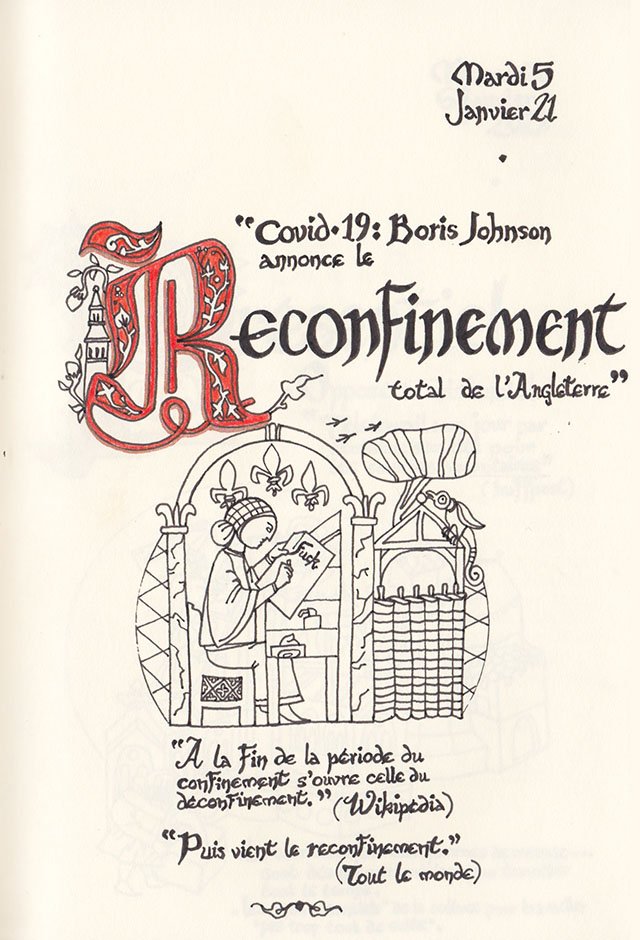 Mardi 5
Janvier 21
"Covid·19: Boris Johnson
annonce le
Reconfinement
total de l'Angleterre"
Fuck
"A la fin de la période du
confinement s'ouvre celle du
déconfinement." (Wikipédia)
"Puis vient le reconfinement."
(Tout le monde)